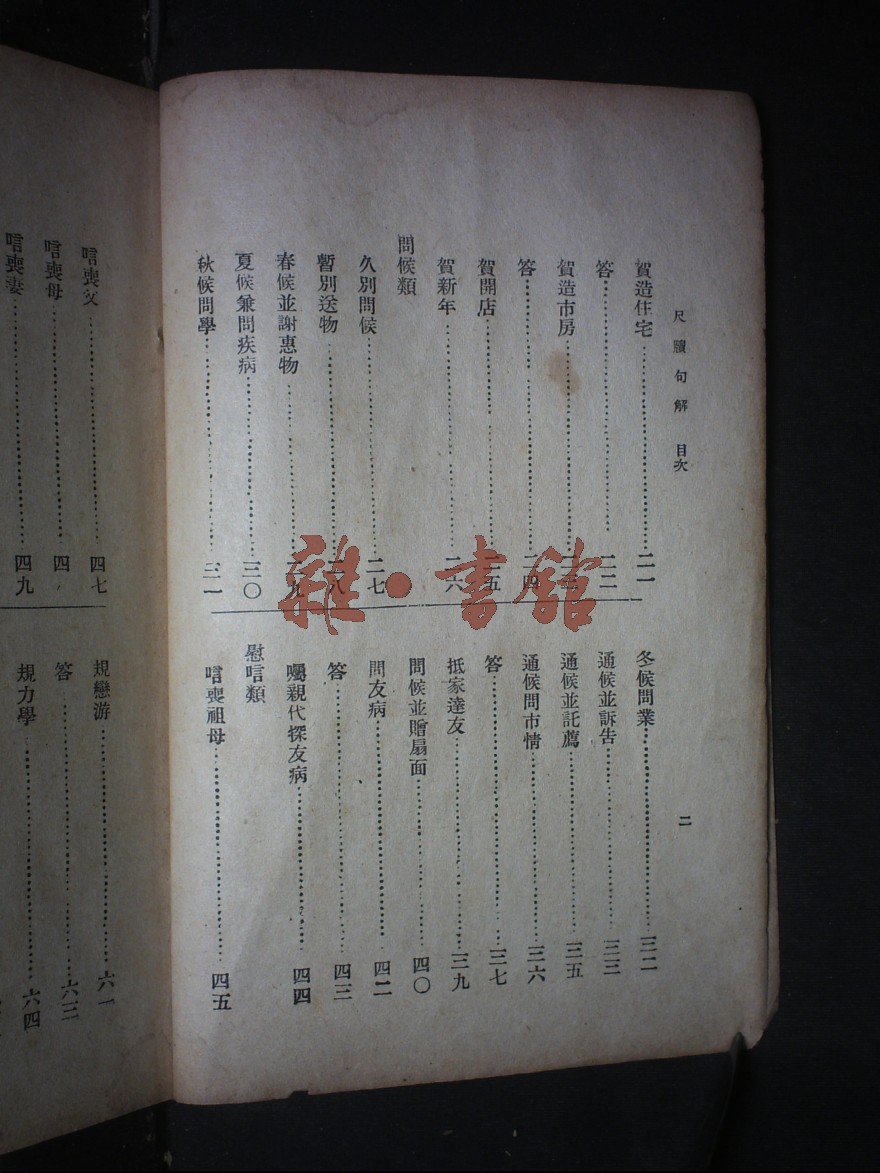 尺牘句解 目次
二
賀造住宅……二一
答……二三
賀造市房
答……二四
賀開店……二五
賀新年……二六
問候類
久別問候……二七
暫別送物……二八
春候並謝惠物……二九
夏候兼問疾病……三〇
秋候問學……三一
冬候問業……三二
通候並訴告……三三
通候並託薦……三五
通候問市情……三六
答……三七
抵家達友……三九
問候並贈扇面……四〇
問友病……四二
答……四三
囑親代探友病……四四
慰唁類
唁喪祖母……四五
唁喪父……四七
唁喪母……四
唁喪妻……四九
規戀游……六一
答……六三
規力學……六四
雜·書館